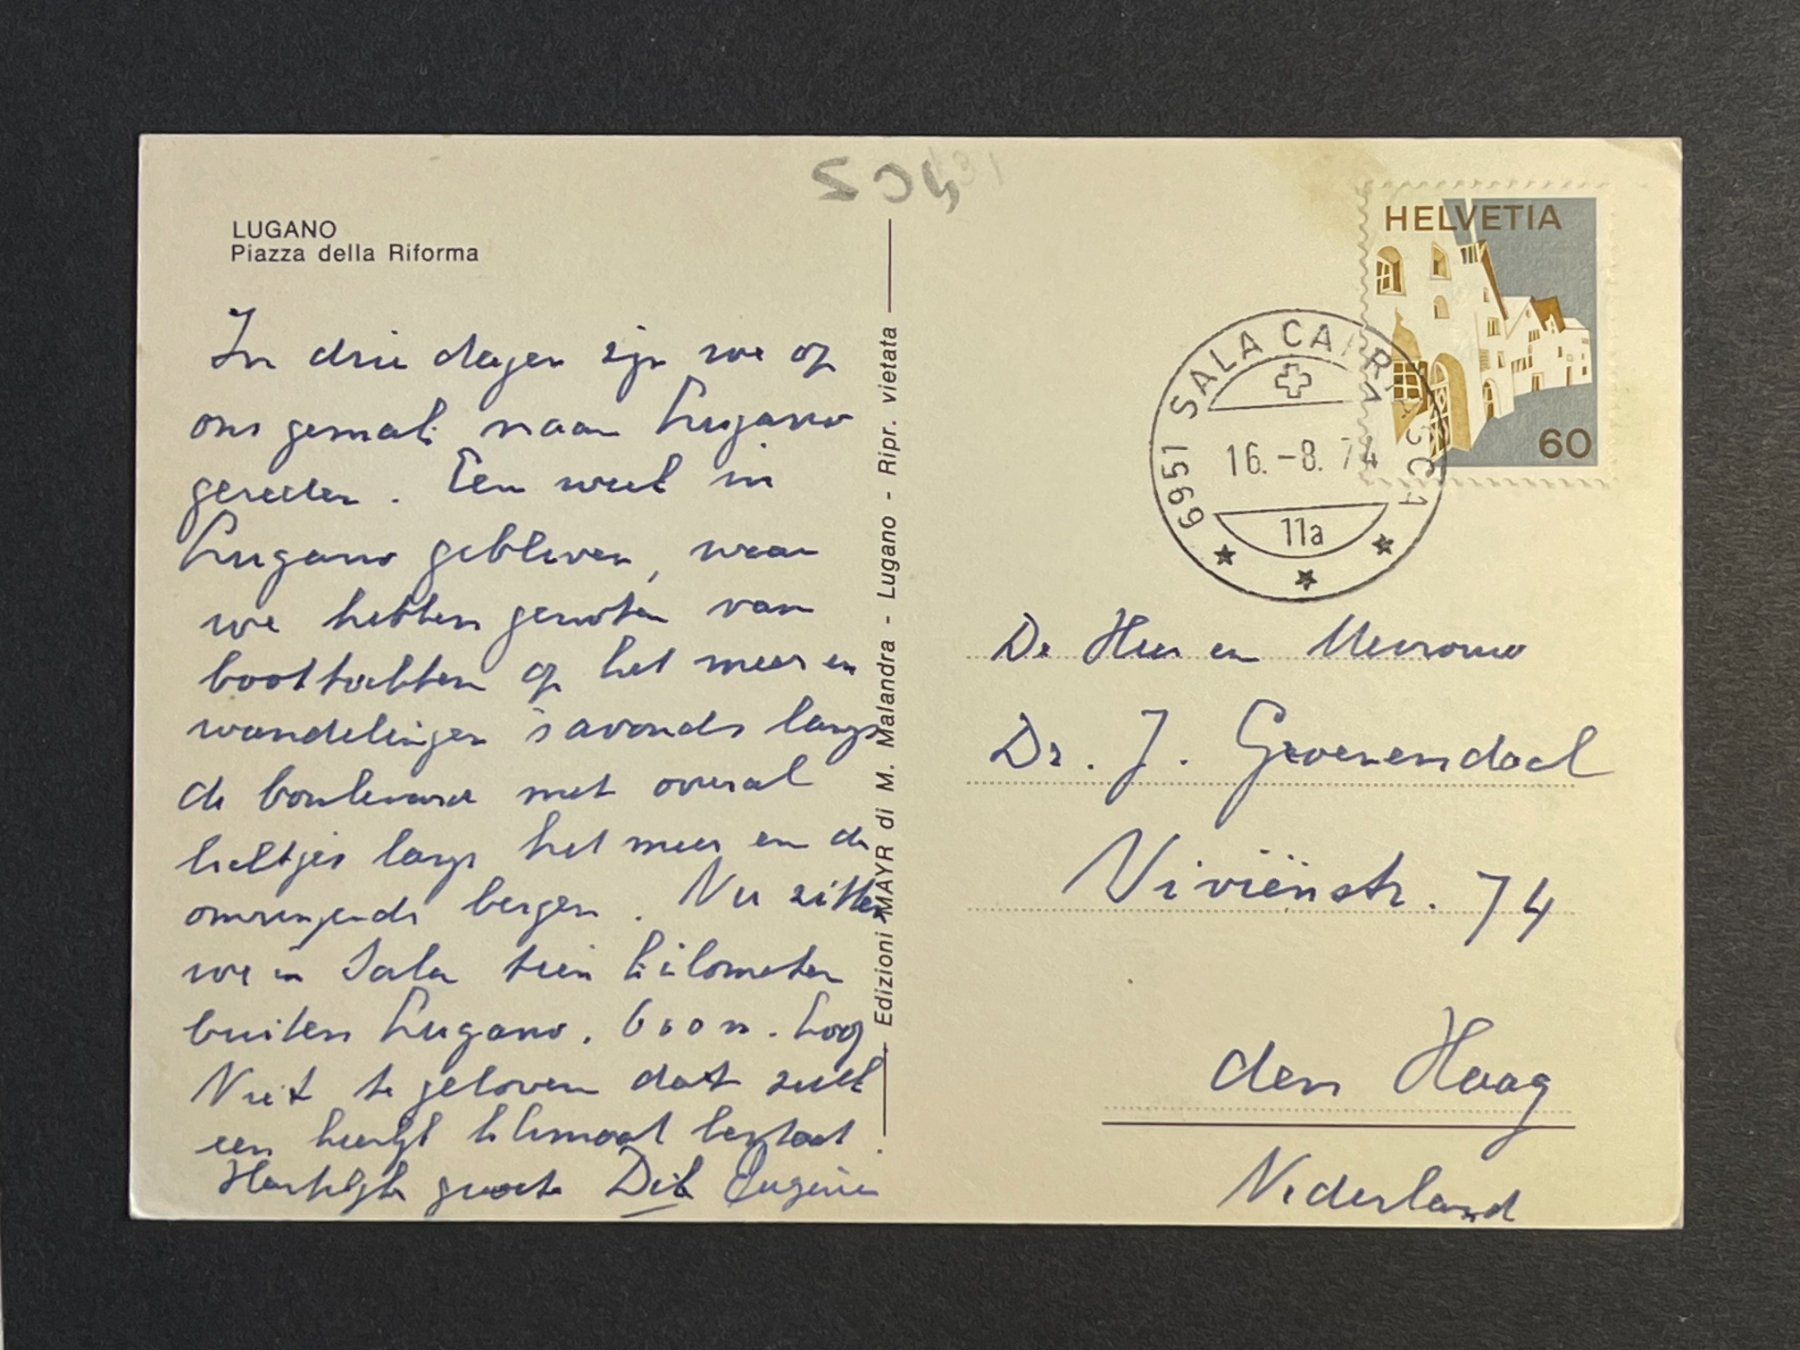 LUGANO
Piazza della Riforma
In drie dagen zijn we op
ons gemak naar Lugano
gereden. Een week in
Lugano gebleven, waar
we hebben genoten van
boottochten op het meer en
wandelingen 's avonds langs
de boulevard met overal
lichtjes langs het meer en de
omringende bergen. Nu zitten
we in Sala tien kilometer
buiten Lugano. 600 m. hoog
Niet te geloven dat zulk
een heerlijk klimaat bestaat.
Hartelijke groeten Dik Eugenie
Edizioni MAYR di M. Malandra - Lugano - Ripr. vietata
504
HELVETIA
60
6951 SALA CAPRIASCA
16.-8.74
11a
De Heer en Mevrouw
Dr. J. Groenendaal
Viviënstr. 74
den Haag
Nederland